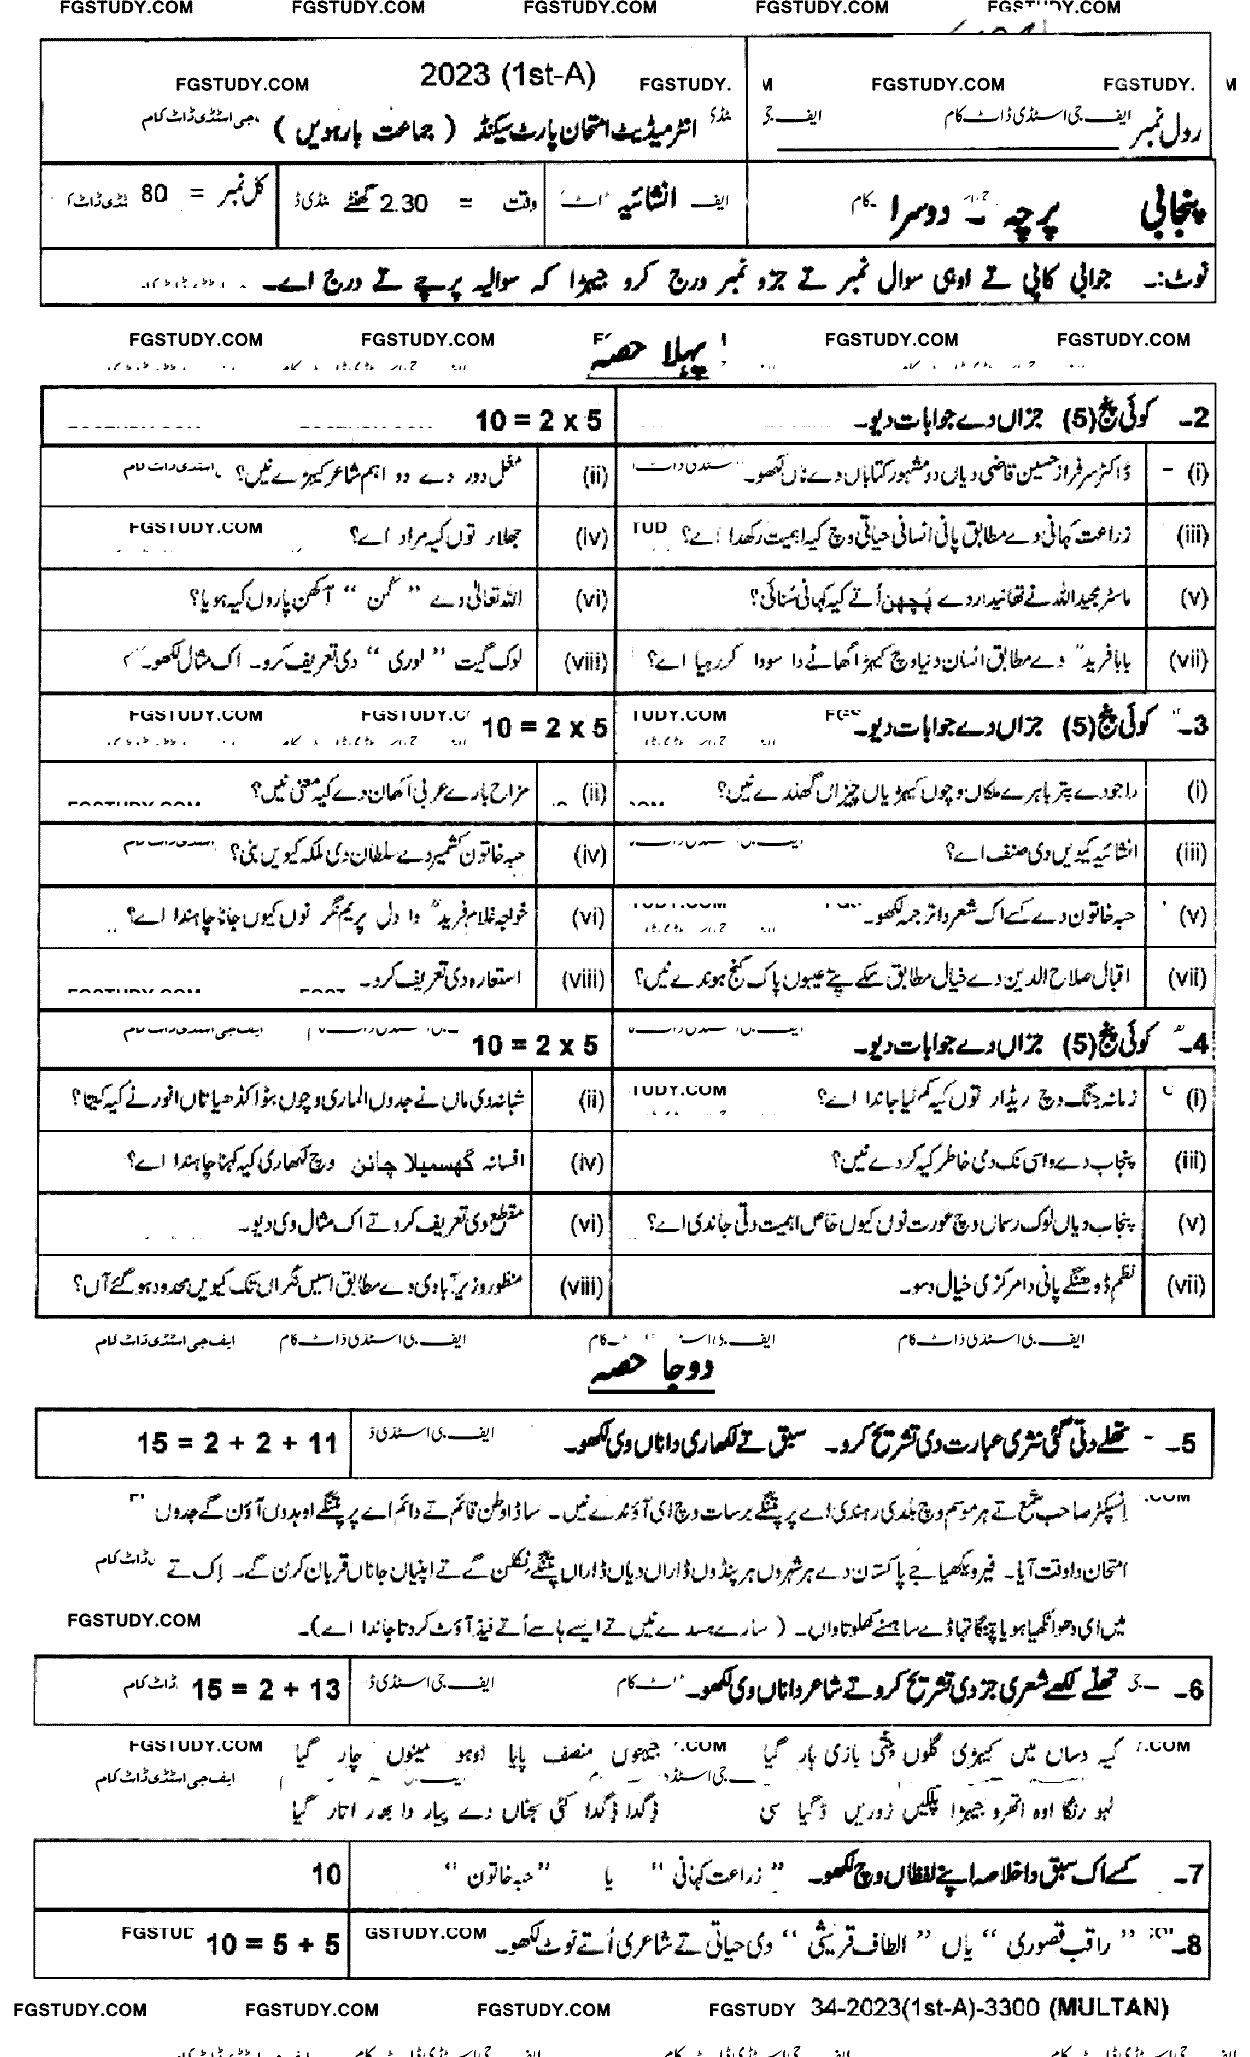 FGSTUDY.COM FGSTUDY.COM FGSTUDY.COM FGSTUDY.COM
2023 (1st-A)
FGSTUDY.COM FGSTUDY. FGSTUDY.COM FGSTUDY.
رول نمبر
انٹرمیڈیٹ امتحان پارٹ سیکنڈ ( جماعت بارہویں )
پنجابی پرچہ ۔ دوسرا انشائیہ وقت = 2.30 گھنٹے کل نمبر = 80
نوٹ:۔ جوابی کاپی تے اوہی سوال نمبر تے جزو نمبر درج کرو جیہڑا کہ سوالیہ پرچے تے درج اے۔
FGSTUDY.COM FGSTUDY.COM FGSTUDY.COM FGSTUDY.COM
پہلا حصہ
2۔ کوئی پنج (5) جزاں دے جوابات دیو۔ 10 = 2 x 5
(i) ڈاکٹر سرفراز حسین قاضی دیاں دو مشہور کتاباں دے ناں لکھو۔
(ii) مغل دور دے دو اہم شاعر کیہڑے نیں؟
(iii) زراعت کہانی دے مطابق پانی انسانی حیاتی وچ کیہ اہمیت رکھدا اے؟
(iv) جھلار توں کیہ مراد اے؟
(v) ماسٹر مجید اللہ نے تھانیدار دے پُچھن اُتے کیہ کہانی سُنائی؟
(vi) اللہ تعالیٰ دے " کُن " آکھن پاروں کیہ ہویا؟
(vii) بابا فریدؒ دے مطابق انسان دنیا وچ کیہڑا گھاٹے دا سودا کر رہیا اے؟
(viii) لوک گیت " لوری " دی تعریف کرو۔ اک مثال لکھو۔
3۔ کوئی پنج (5) جزاں دے جوابات دیو۔ 10 = 2 x 5
(i) راجو دے پتر باہرے ملکاں وچوں کیہڑیاں چیزاں گھلدے نیں؟
(ii) مزاح بارے عربی اکھان دے کیہ معنی نیں؟
(iii) انشائیہ کیویں دی صنف اے؟
(iv) حبہ خاتون کشمیر دے سلطان دی ملکہ کیویں بنی؟
(v) حبہ خاتون دے کسے اک شعر دا ترجمہ لکھو۔
(vi) خواجہ غلام فریدؒ دا دل پریم نگر توں کیوں جانا چاہندا اے؟
(vii) اقبال صلاح الدین دے خیال مطابق سُکے پتے عیبوں پاک کنج ہوندے نیں؟
(viii) استعارہ دی تعریف کرو۔
4۔ کوئی پنج (5) جزاں دے جوابات دیو۔ 10 = 2 x 5
(i) زمانہ جنگ وچ ریڈار توں کیہ کم لیا جاندا اے؟
(ii) شبانہ دی ماں نے جدوں الماری وچوں بٹوا کڈھیا تاں انور نے کیہ کیتا؟
(iii) پنجاب دے واسی نک دی خاطر کیہ کردے نیں؟
(iv) افسانہ گھسمیلا چانن وچ لکھاری کیہ کہنا چاہندا اے؟
(v) پنجاب دیاں لوک رسماں وچ عورت نوں کیوں خاص اہمیت دتی جاندی اے؟
(vi) مقطع دی تعریف کرو تے اک مثال وی دیو۔
(vii) نظم ڈوہنگے پانی دا مرکزی خیال دسو۔
(viii) منظور وزیر آبادی دے مطابق اسیں فکراں تک کیویں محدود ہو گئے آں؟
دوجا حصہ
5۔ تھلے دتی گئی نثری عبارت دی تشریح کرو۔ سبق تے لکھاری دا ناں وی لکھو۔ 15 = 2 + 2 + 11
انسپکٹر صاحب شمع تے ہر موسم وچ بلدی رہندی اے پر پتنگے برسات وچ ای آؤندے نیں۔ ساڈا وطن قائم تے دائم اے پر پتنگے اوہدوں آؤن گے جدوں
امتحان دا وقت آیا۔ فیر ویکھیا جے پاکستان دے ہر شہروں ہر پنڈوں ڈاراں دیاں ڈاراں پتنگے نکلن گے تے اپنیاں جاناں قربان کرن گے۔ اِک تے
میں ای دھوانکھیا ہویا پتنگا تہاڈے ساہمنے کھلوتا واں۔ ( سارے ہسدے نیں تے ایسے ہاسے اُتے فیڈ آؤٹ کردتا جاندا اے)۔
FGSTUDY.COM
6۔ تھلے لکھے شعری جز دی تشریح کرو تے شاعر دا ناں وی لکھو۔ 15 = 2 + 13
کیہ دساں میں کیہڑی گلوں جتی بازی ہار گیا جیہنوں منصف پایا اوہو مینوں چار گیا
لہو رنگا اوہ اتھرو جیہڑا پلکیں زوریں ڈگیا سی ڈِگدا ڈِگدا کئی سجناں دے پیار دا بھار اتار گیا
7۔ کسے اک سبق دا خلاصہ اپنے لفظاں وچ لکھو۔ " زراعت کہانی " یا " حبہ خاتون " 10
8۔ " راقب قصوری " یاں " الطاف قریشی " دی حیاتی تے شاعری اُتے نوٹ لکھو۔ 10 = 5 + 5
FGSTUDY.COM FGSTUDY.COM FGSTUDY.COM FGSTUDY 34-2023(1st-A)-3300 (MULTAN)